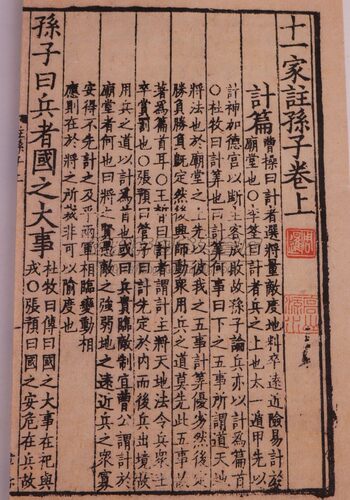 十一家註孫子卷上
計篇
曹操曰計者選將量敵度地料卒遠近險易計於
廟堂也○李筌曰計者兵之上也太一遁甲先以
計神加德宮以斷主客成敗故孫子論兵亦以計為篇首
○杜牧曰計算也曰計算何事曰下之五事所謂道天地
將法也於廟堂之上先以彼我之五事計算優劣然後定
勝負勝負既定然後興師動眾用兵之道莫先此五事故
著為篇首耳○王晳曰計者謂計主將天地法令兵眾士
卒賞罰也○張預曰管子曰計先定於內而後兵出境故
用兵之道以計為首也或曰兵貴臨敵制宜曹公謂計於
廟堂者何也曰將之賢愚敵之強弱地之遠近兵之眾寡
安得不先計之及乎兩軍相臨變動相
應則在於將之所裁非可以隃度也
孫子曰兵者國之大事
杜牧曰傳曰國之大事在祀與
戎○張預曰國之安危在兵故